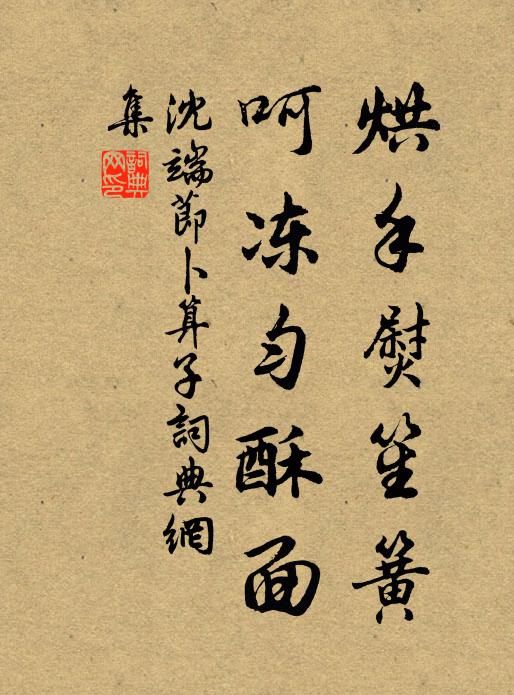 烘手熨笙簧
呵冻匀酥面
沈端節卜算子詞典網
集
詞典
网印